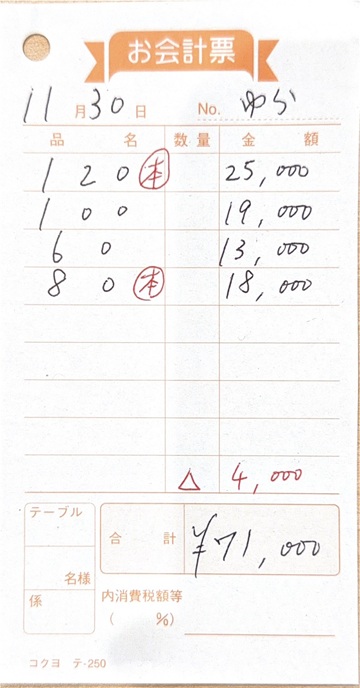 お会計票
11月30日 No. ゆら
品名 数量 金額
120 本 25,000
100 19,000
60 13,000
80 本 18,000
△ 4,000
テーブル
名様
係
合計 ¥71,000
内消費税額等
( %)
コクヨ テ-250